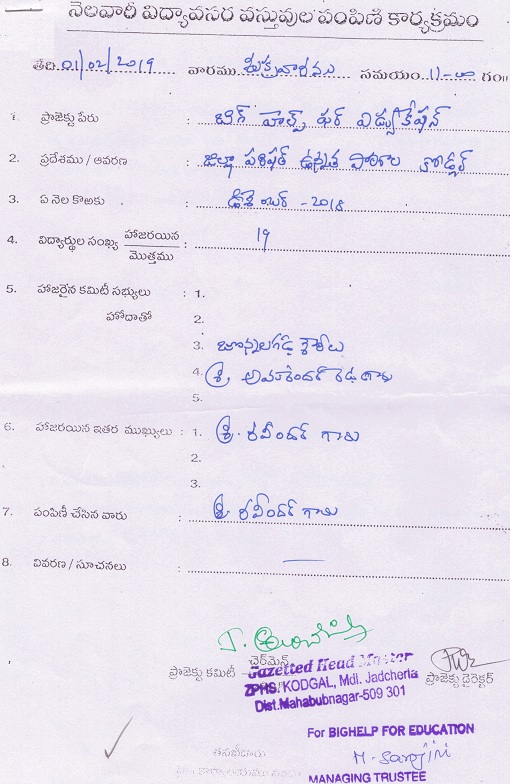 నెలవారీ విద్యావసర వస్తువుల పంపిణీ కార్యక్రమం
తేది 01/02/2019 వారము శుక్రవారము సమయం 11-00 గం॥
1. ప్రాజెక్టు పేరు : బిగ్ హెల్ప్ ఫర్ ఎడ్యుకేషన్
2. ప్రదేశము / ఆవరణ : జిల్లా పరిషత్ ఉన్నత పాఠశాల కోడ్గల్
3. ఏ నెల కొఱకు : డిశెంబర్ - 2018
4. విద్యార్థుల సంఖ్య హాజరయిన / మొత్తము : 19
5. హాజరైన కమిటీ సభ్యులు : 1.
హోదాతో 2.
3. జొన్నలగడ్డ శ్రీశైలు
4. శ్రీ రెడ్డి గారు
5.
6. హాజరయిన ఇతర ముఖ్యులు : 1. శ్రీ. రవీందర్ గారు
2.
3.
7. పంపిణీ చేసిన వారు : శ్రీ. రవీందర్ గారు
8. వివరణ / సూచనలు : —
ప్రాజెక్టు కమిటీ చైర్మెన్ ప్రాజెక్టు డైరెక్టర్
Gazetted Head Master
ZPHS: KODGAL, Mdl. Jadcherla
Dist. Mahabubnagar-509 301
For BIGHELP FOR EDUCATION
M. Sanjini
MANAGING TRUSTEE